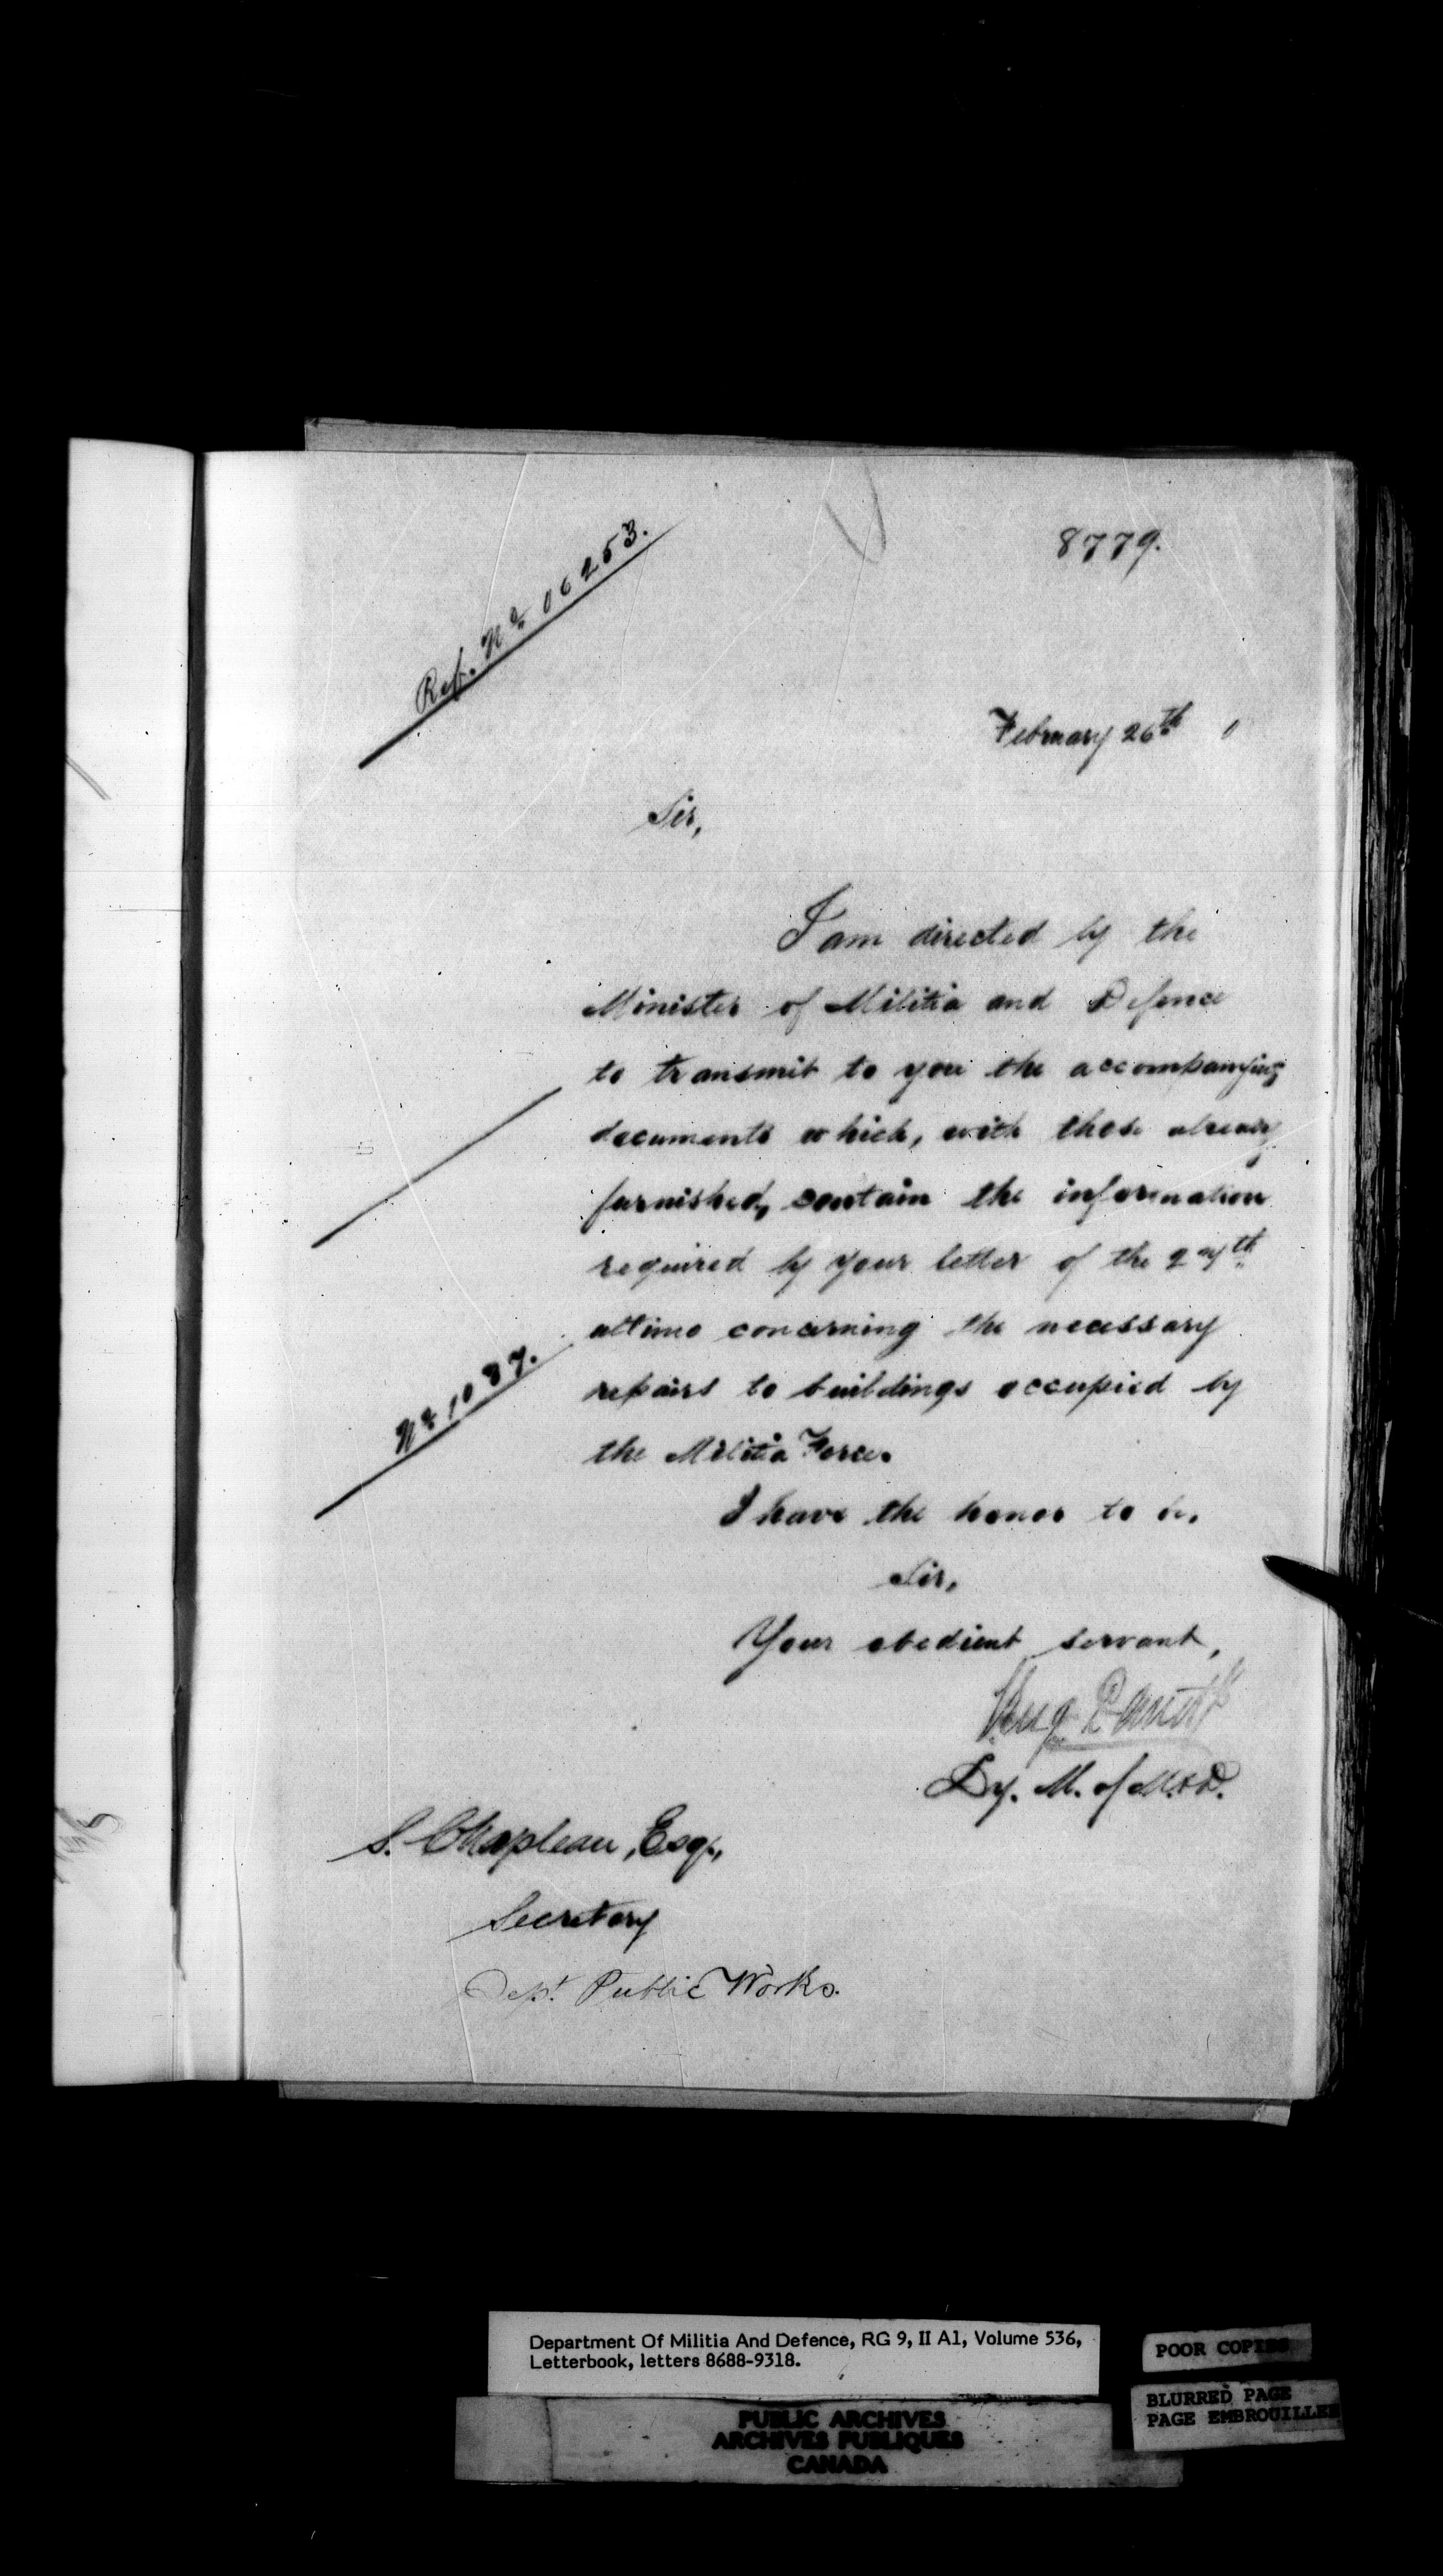 8779.
Ref. No 06253.
February 26th
Sir,
I am directed by the
Minister of Militia and Defence
to transmit to you the accompanying
documents which, with those already
furnished, contain the information
required by your letter of the 27th
ultimo concerning the necessary
No 1087.
repairs to buildings occupied by
the Militia Force.
I have the honor to be,
Sir,
Your obedient servant,
Eug Panet
Dy. M. of M. & D.
S. Chapleau, Esq.,
Secretary
Dept. Public Works.
Department Of Militia And Defence, RG 9, II A1, Volume 536,
Letterbook, letters 8688-9318.
POOR COPIES
BLURRED PAGE
PAGE EMBROUILLEE
PUBLIC ARCHIVES
ARCHIVES PUBLIQUES
CANADA